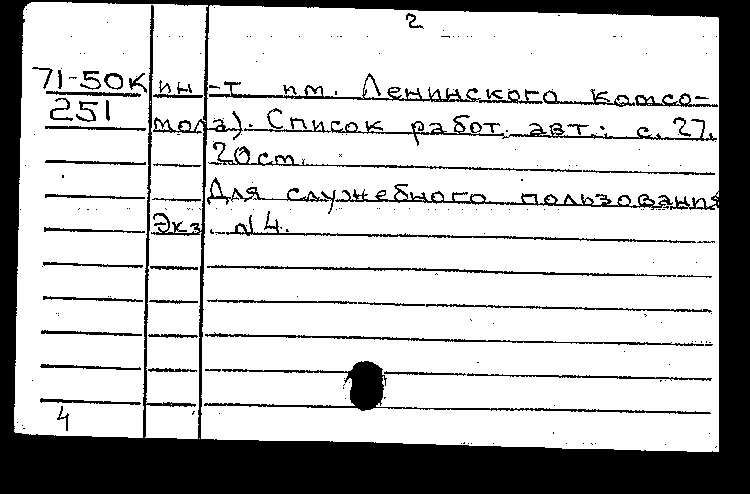 2
71-50К ин-т им. Ленинского комсо-
251
мола). Список работ. авт.: с. 27.
20 см.
Для служебного пользования
Экз. N 4.
4